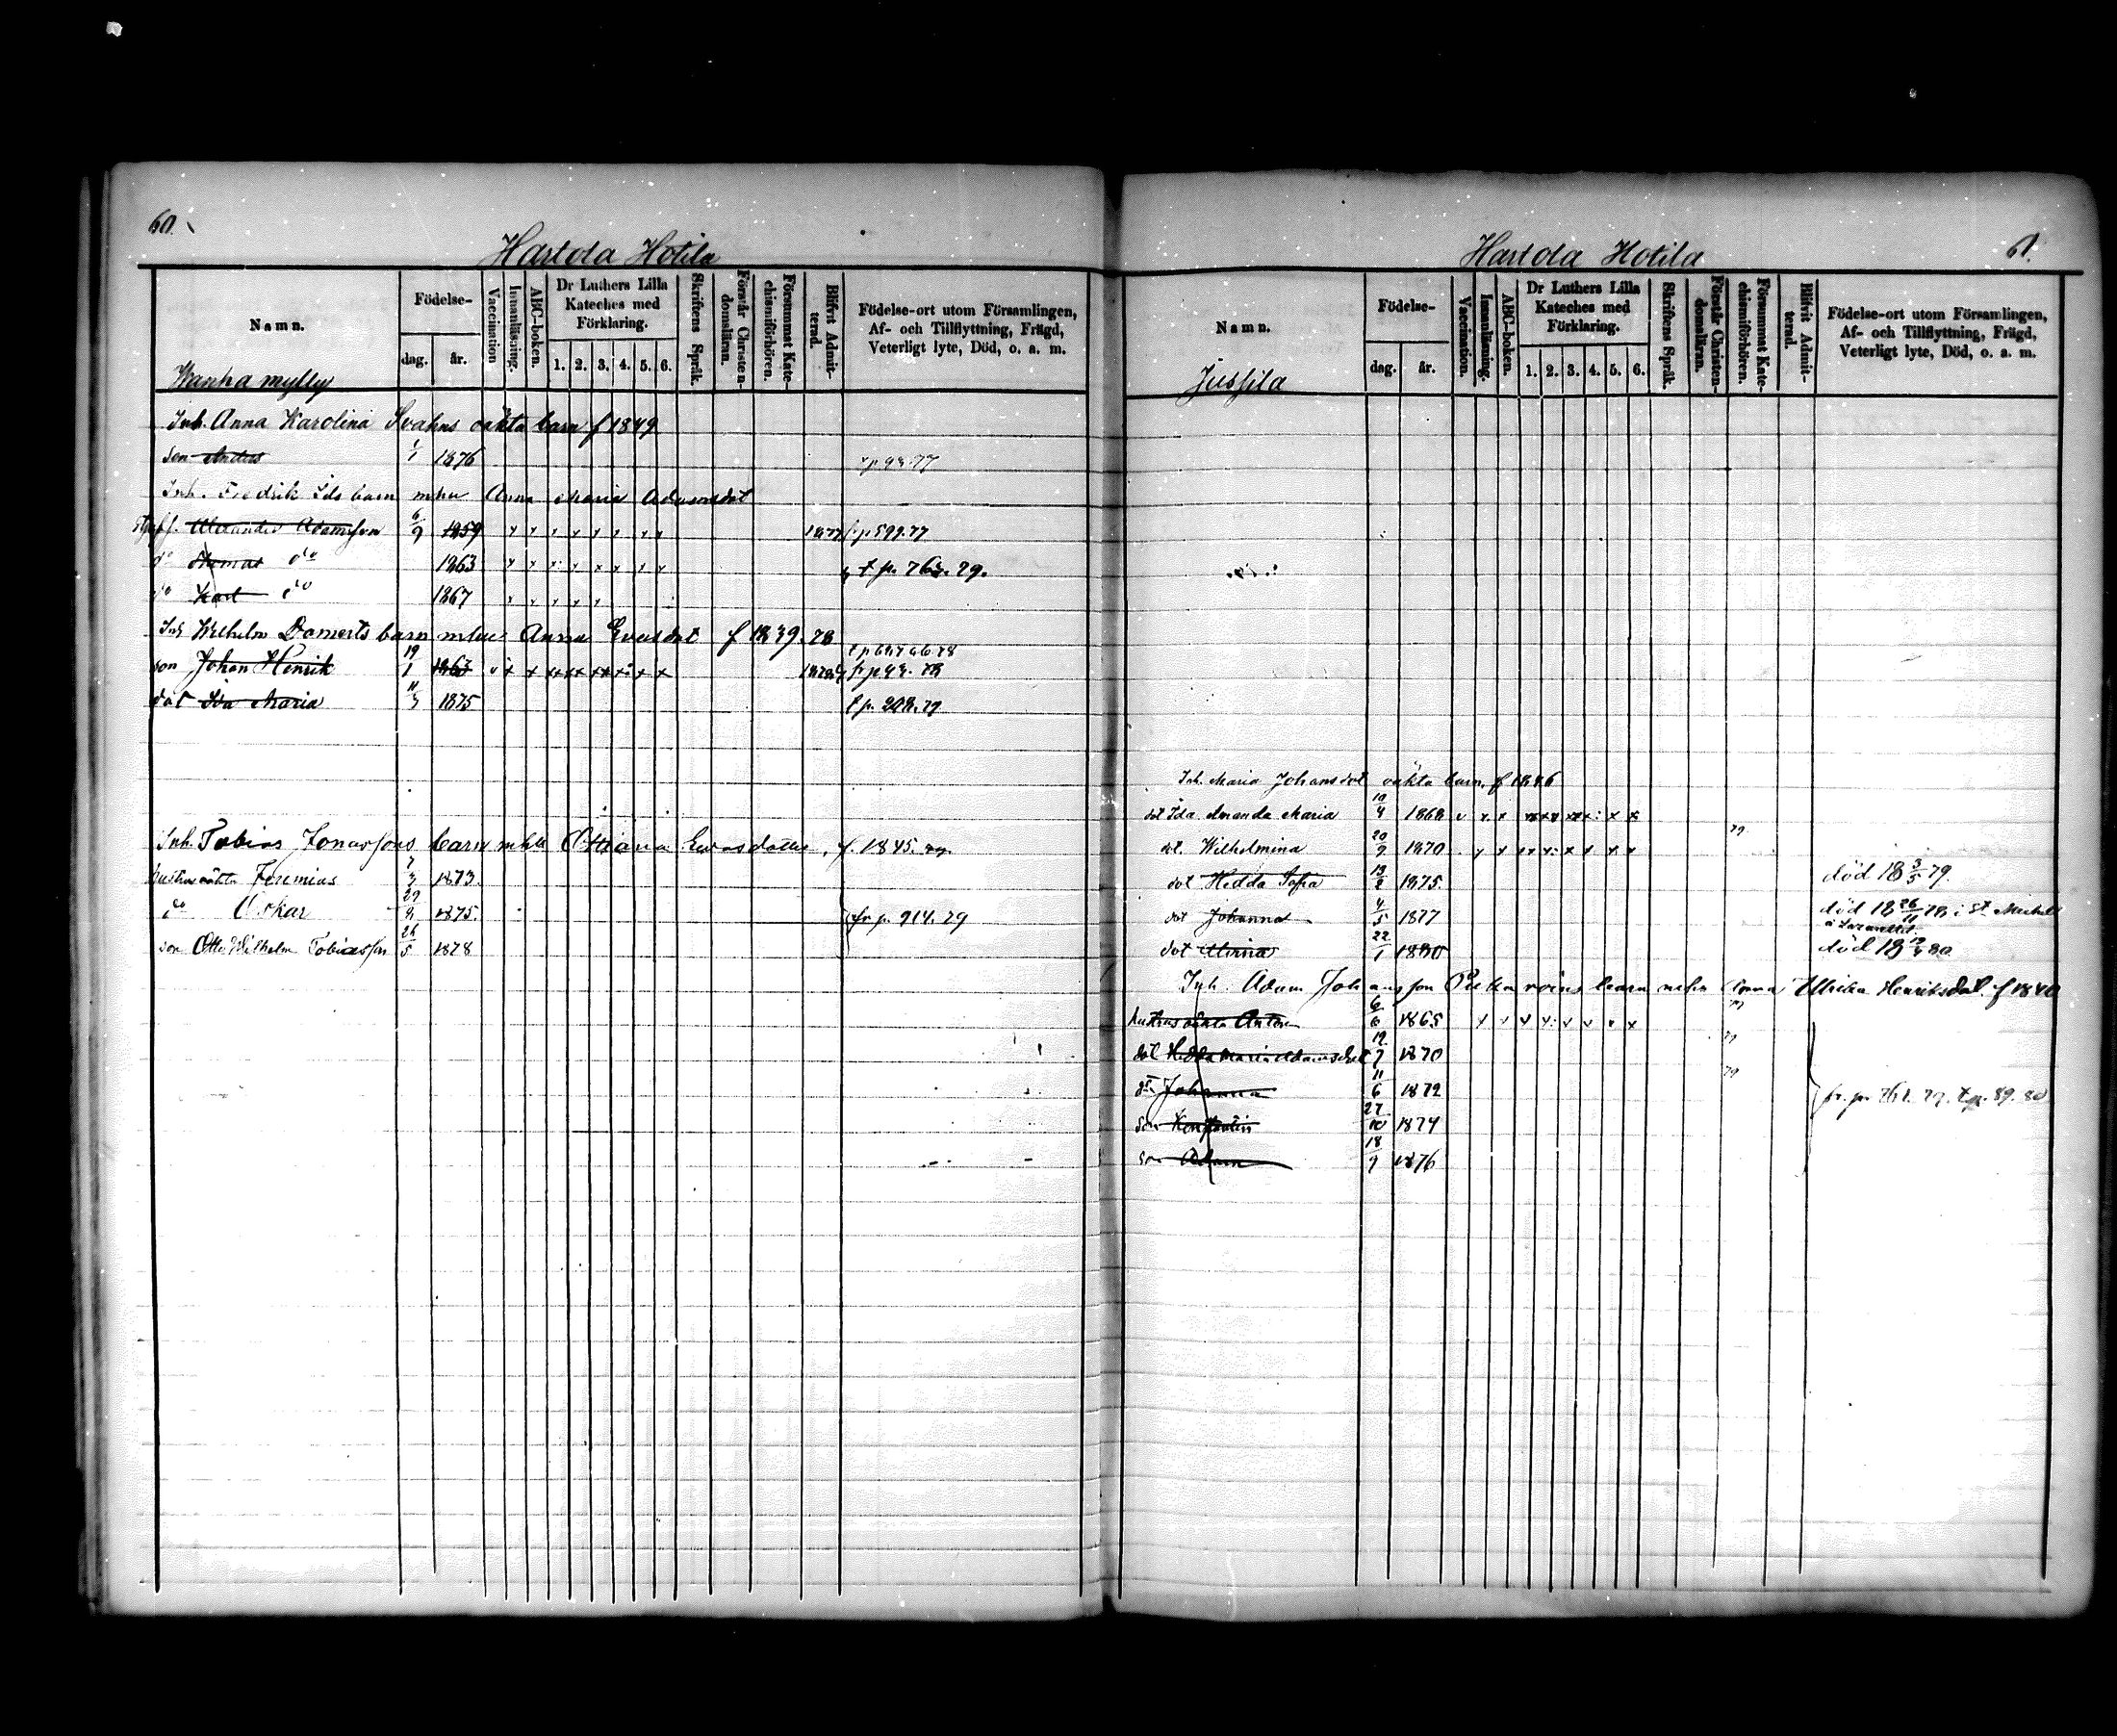 60.
Hartola Hotila
Namn.
Födelse-
dag.
år.
Vaccination
Innanläsning.
ABC-boken.
Dr Luthers Lilla Kateches med Förklaring.
1. 2. 3. 4. 5. 6.
Skriftens Språk.
Förstår Christendomsläran.
Försummat Katechismiförhören.
Blifvit Admitterad.
Födelse-ort utom Församlingen, Af- och Tillflyttning, Frägd, Veterligt lyte, Död, o. a. m.
Wanha mylly
Inh. Anna Karolina Svahns oäkta barn f 1849
son Anders 1/1 1876
Inh. Fredrik barn mhu Anna Maria Adamsdot
Alexander Adamsson 6/9 1859 1877 fr p 599.77
do do 1863 t p. 763.79.
do Karl do 1867
Inh Wilhelm Domerts barn mhu Anna Evasdot f 1839. 78
son Johan Henrik 19/1 1863 fr p 93. 78
dot Ida Maria 11/3 1875 t p. 208.79
Inh. Tobias Jonassons barn mhu Evasdotter, f. 1845. 79.
hustrus oäkta Jeremias 7/3 1873.
do Oskar 29/9 1875. fr p. 914. 79
son Otto Wilhelm Tobiasson 26/5 1878
61.
Hartola Hotila
Namn.
Födelse-
dag.
år.
Vaccination.
Innanläsning.
ABC-boken.
Dr Luthers Lilla Kateches med Förklaring.
1. 2. 3. 4. 5. 6.
Skriftens Språk.
Förstår Christendomsläran.
Försummat Katechismiförhören.
Blifvit Admitterad.
Födelse-ort utom Församlingen, Af- och Tillflyttning, Frägd, Veterligt lyte, Död, o. a. m.
Jussila
Inh. Maria Johansdot oäkta barn, f 1846
dot Ida Amanda Maria 10/4 1868
dot. Wilhelmina 20/9 1870 79
dot Hedda Sofia 13/2 1875. död 18 3/5 79.
dot Johanna 4/5 1877 död 18 26/11 78 i St. Michel
dot 22/1 1880 död 18 80
Inh. Adam Johansson barn mhu Anna Ulrika Henriksdot. f 1840
hustrus oäkta Anton 6/6 1865 79
dot Hedda Maria Adamsdot 12/7 1870 79
dt. Johanna 11/6 1872 79 fr. p. 761. 79. t p. 89. 80
son Konstantin 27/10 1874
son Adam 18/9 1876